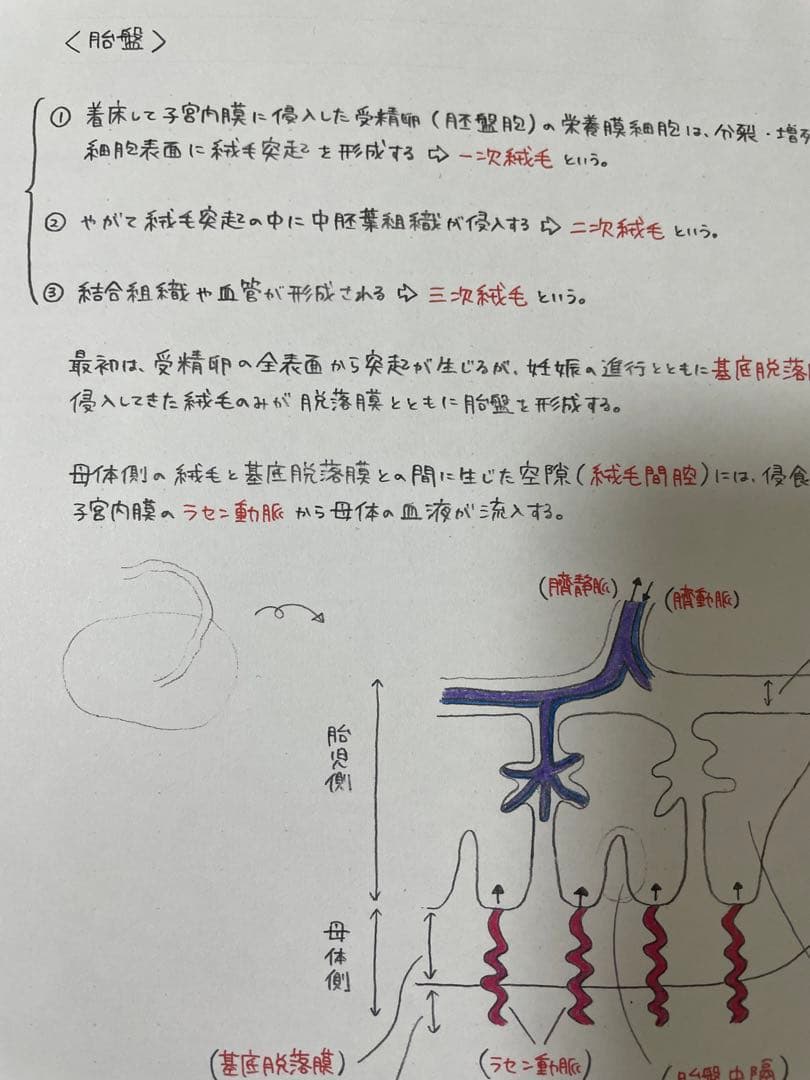 〈胎盤〉
① 着床して子宮内膜に侵入した受精卵（胚盤胞）の栄養膜細胞は、分裂・増殖
細胞表面に絨毛突起を形成する ⇨ 一次絨毛 という。
② やがて絨毛突起の中に中胚葉組織が侵入する ⇨ 二次絨毛 という。
③ 結合組織や血管が形成される ⇨ 三次絨毛 という。
最初は、受精卵の全表面から突起が生じるが、妊娠の進行とともに基底脱落
侵入してきた絨毛のみが脱落膜とともに胎盤を形成する。
母体側の絨毛と基底脱落膜との間に生じた空隙（絨毛間腔）には、侵食
子宮内膜のラセン動脈から母体の血液が流入する。
（臍静脈） （臍動脈）
胎児側
母体側
（基底脱落膜） （ラセン動脈） （胎盤中隔）